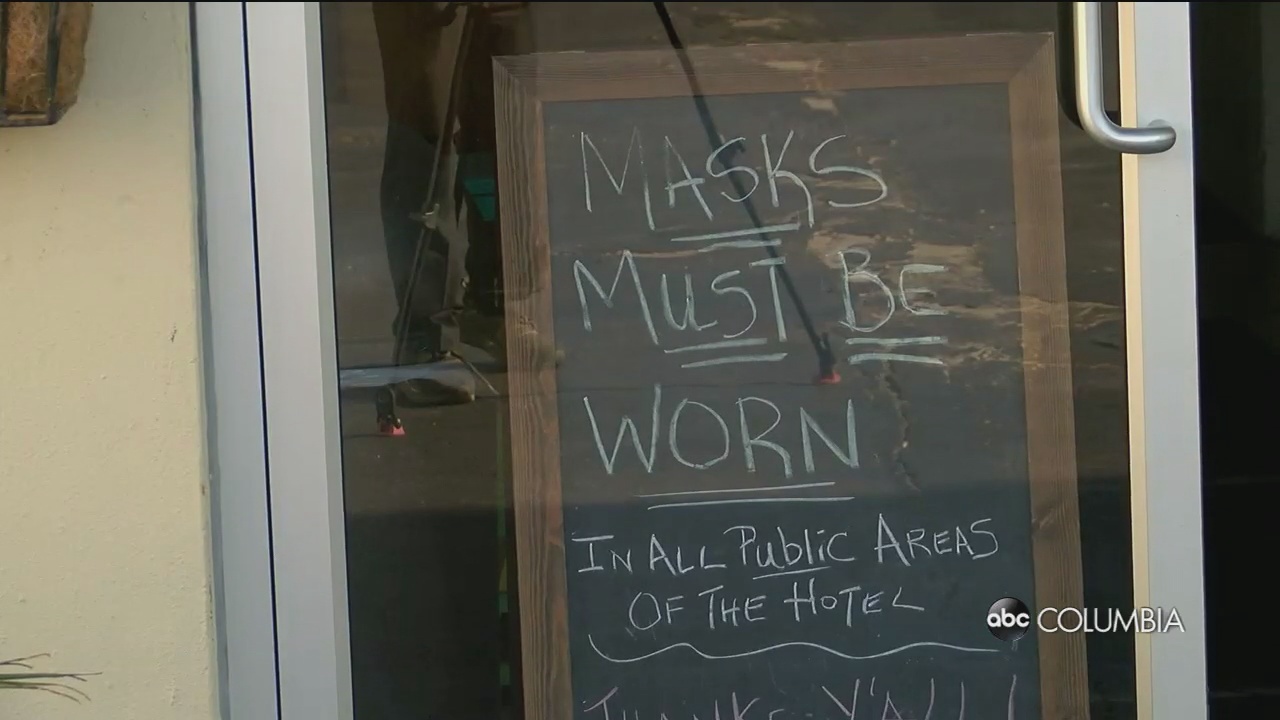 MASKS
MUST BE
WORN
IN ALL Public AREAS
OF THE HOTEL
THANKS Y'ALL!
abc COLUMBIA